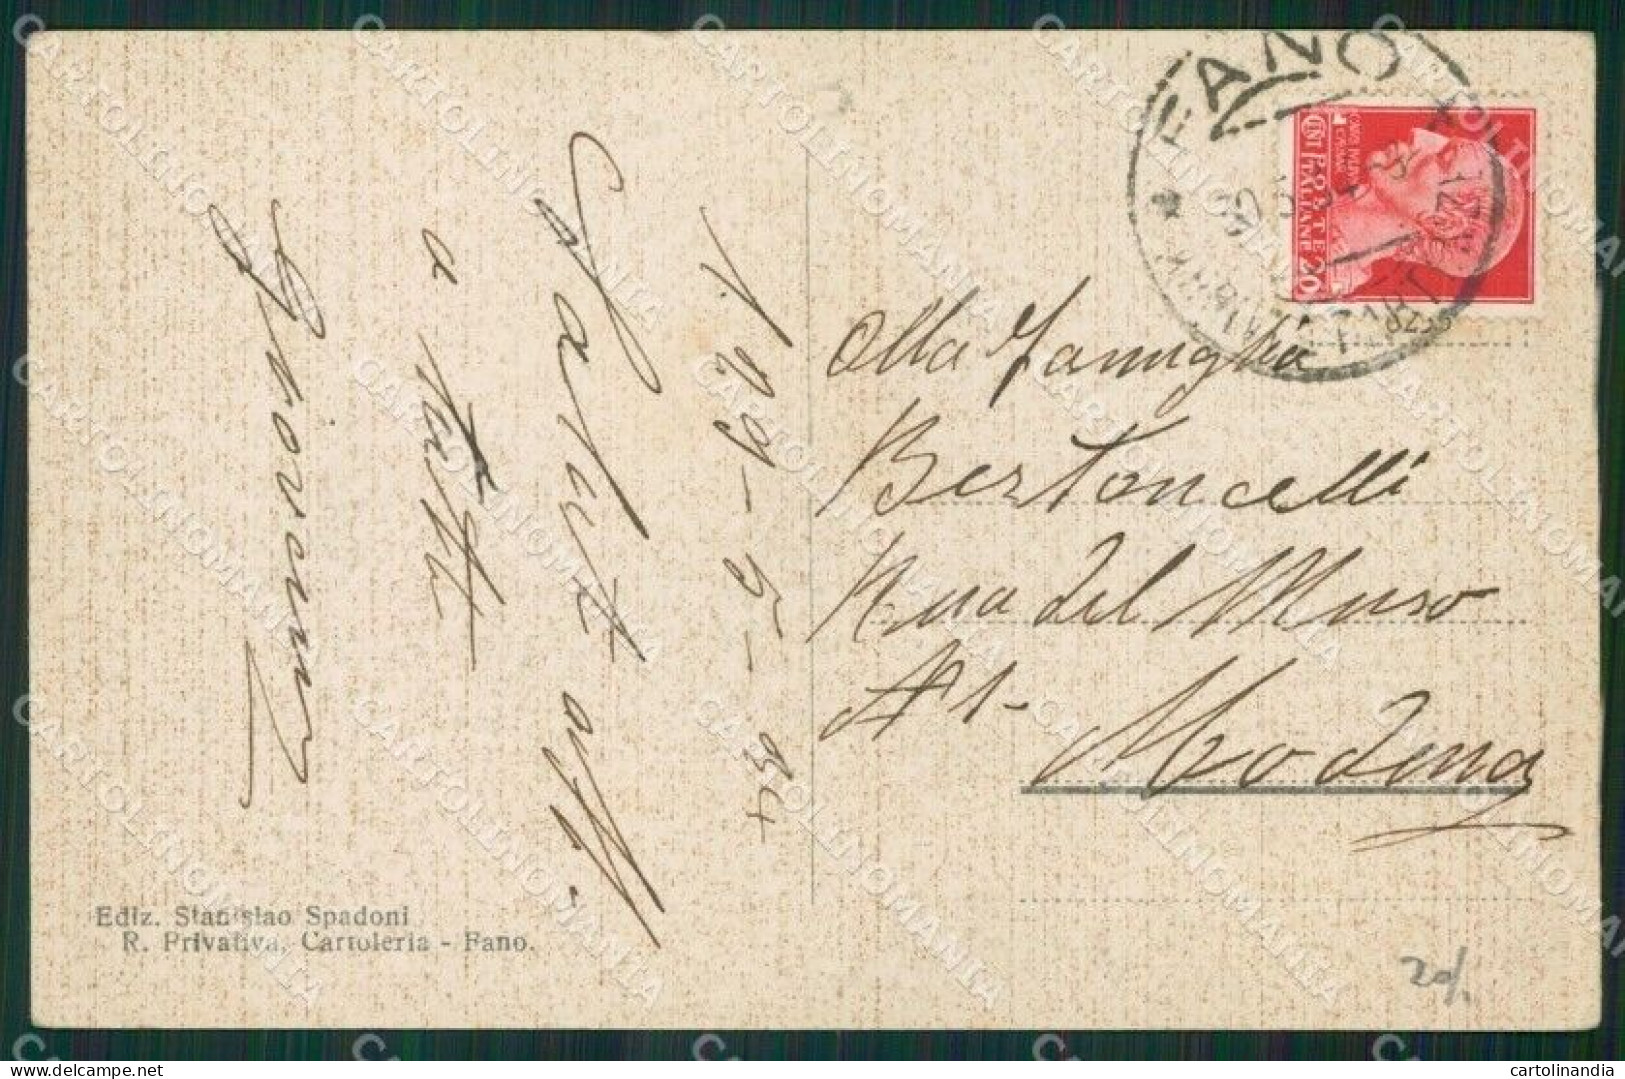 1. 29-5-34
Saluti aff.
a tutti
Alla Famiglia
Bertoncelli
Rua del Muro
N° 1-
Modena
FANO
POSTE ITALIANE 20
CENT
Ediz. Stanislao Spadoni
R. Privativa, Cartoleria - Fano.
20/.
CARTOLINOMANIA
cartolinandia